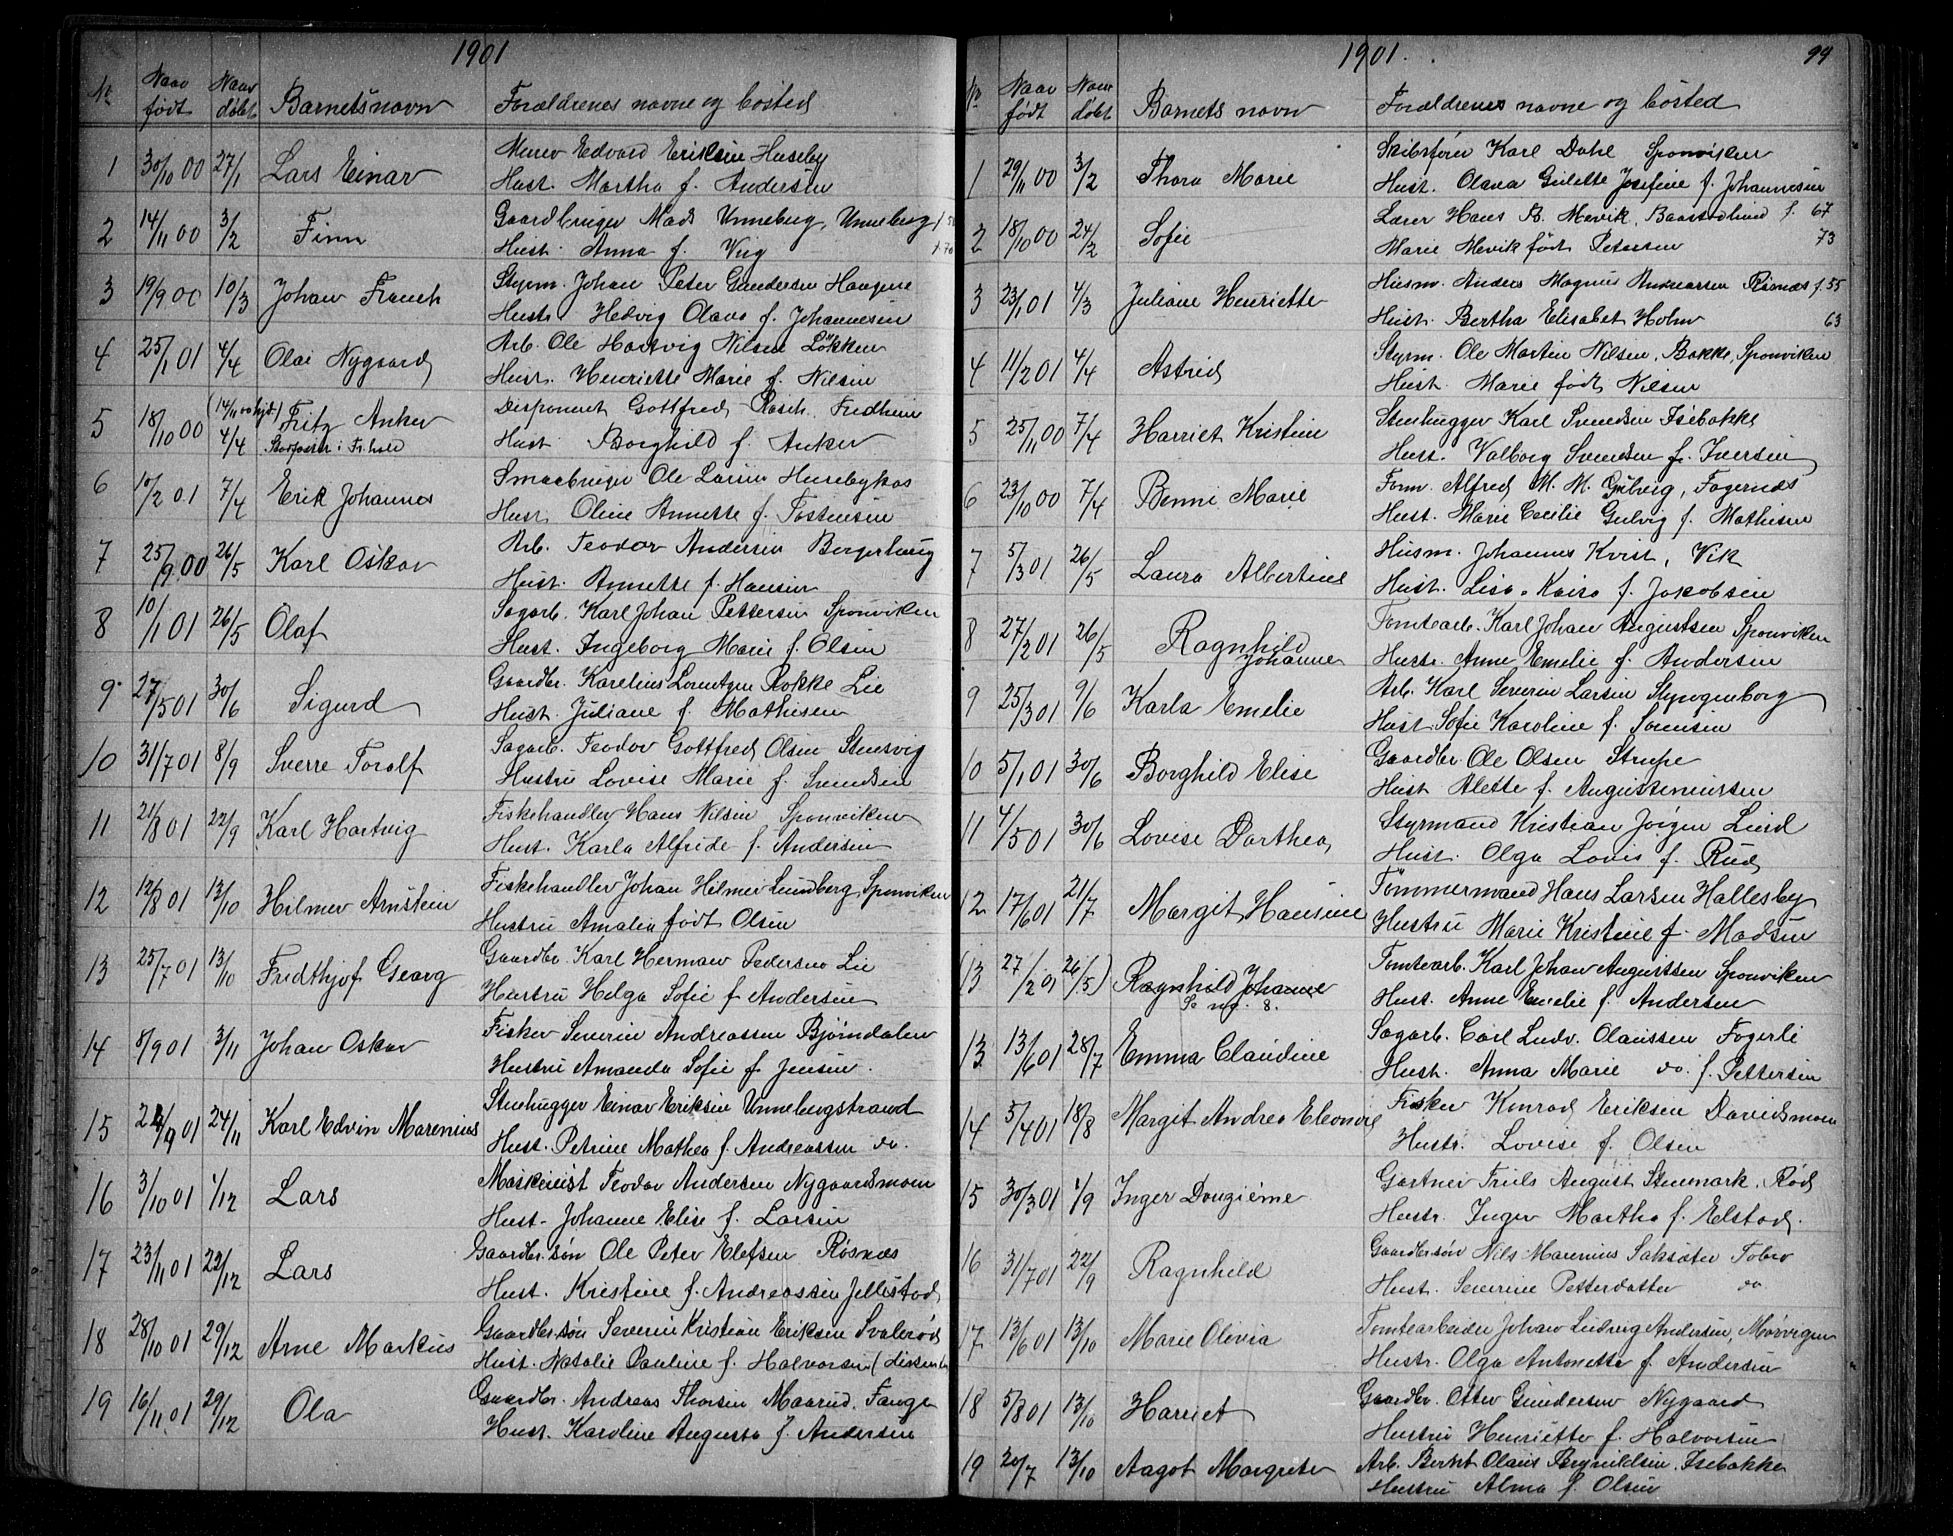 1901
Nr. Naar født Naar døbt Barnets navn Forældrenes navne og bosted
1 30/10 00 27/1 Lars Einar Murer Edvard Eriksen Huseby
Hust. Martha f. Andersen
2 14/11 00 3/2 Finn Gaardbruger Mads Unneberg, Unneberg
Hust. Anna f. Vug
3 19/9 00 10/3 Johan Franch Styrm. Johan Peter Gundersen Haagene
Hustr. Hedvig Olava f. Johannesen
4 25/1 01 4/4 Olai Nygaard Arb. Ole Hartvig Nilsen Løkken
Hust. Henriette Marie f. Nilsen
5 18/10 00 (14/11 00 hjd.) 4/4 Fritz Anker Disponent Gottfred Rasch, Fredheim
i Fr.hald Hust. Borghild f. Anker
6 10/2 01 7/4 Erik Johannes Smaabruger Ole Larsen Husebykas
Hust. Oline Annette f. Tostensen
7 25/9 00 26/5 Karl Oskar Arb. Teodor Andersen Bergerhaug
Hust. Annette f. Hansen
8 10/1 01 26/5 Olaf Sagarb. Karl Johan Pettersen Sponviken
Hust. Ingeborg Marie f. Olsen
9 27/5 01 30/6 Sigurd Gaardbr. Karelius Lorentzen Rokke Lie
Hust. Juliane f. Mathisen
10 31/7 01 8/9 Sverre Toralf Sagarb. Teodor Gottfred Olsen Stensvig
Hustru Lovise Marie f. Svendsen
11 21/8 01 22/9 Karl Hartvig Fiskehandler Hans Nilsen Sponviken
Hust. Karla Alfride f. Andersen
12 12/8 01 13/10 Hilmer Arnstein Fiskehandler Johan Hilmer Lundberg, Sponviken
Hustru Amalia født Olsen
13 25/7 01 13/10 Fredthjof Georg Gaardbr. Karl Herman Pedersen Lie
Hustru Helga Sofie f. Andersen
14 8/9 01 3/11 Johan Oskar Fisker Severin Andreassen Bjørndalen
Hustru Amanda Sofie f. Jensen.
15 24/9 01 24/11 Karl Edvin Marenius Stenhugger Einar Eriksen Unnebergstrand
Hust. Petrine Mathea f. Andreassen do.
16 3/10 01 1/12 Lars Maskinist Teodor Andersen Nygaardsmoen
Hust. Johanne Elise f. Larsen
17 23/11 01 22/12 Lars Gaardbr.søn Ole Peter Elefsen Røsnæs
Hust. Kristine f. Andreassen Jellestad
18 28/10 01 29/12 Arne Markus Gaardbr.søn Severin Kristian Eriksen Svalerød
Hust. Natalie Pauline f. Halvorsen
19 16/11 01 29/12 Ola Gaardbr. Andreas Thorsen Maarud. Tange
Hust. Karoline Augusta f. Andersen
1901.
99
Nr. Naar født Naar døbt Barnets navn Forældrenes navne og bosted
1 29/11 00 3/2 Thora Marie Skibsfører Karl Dahl Sponviken
Hust. Olava Gulette Josefine f. Johannesen
2 18/10 00 24/2 Sofie Lærer Hans B. Mevik, Baastadlund f. 67
Marie Mevik født Petersen 73
3 23/1 01 4/3 Juliane Henriette Husm. Anders Magnus Andreassen Røsnæs f. 55
Hust. Bertha Elisabet Holm 63
4 11/2 01 4/4 Astrid Styrm. Ole Martin Nilsen, Bakke, Sponviken
Hust. Marie født Nilsen
5 25/11 00 7/4 Harriet Kristine Stenhugger Karl Svendsen Isebakke
Hust. Valborg Svendsen f. Iversen
6 23/10 00 7/4 Benni Marie Form. Alfred M. M. Gulvig, Fagernæs
Hust. Marie Cecilie Gulvig f. Mathisen
7 5/3 01 26/5 Laura Albertine Husm. Johannes Kvist, Vik
Hust. Lisa Kaisa f. Jakobsen
8 27/2 01 26/5 Ragnhild Johanne Tomtearb. Karl Johan Augustsen Sponviken
Hustr. Anne Emelie f. Andersen
9 25/3 01 9/6 Karla Emelie Arb. Karl Severin Larsen Stangenborg
Hust. Sofie Karoline f. Sørensen
10 5/1 01 30/6 Borghild Elise Gaardbr. Ole Olsen Strupe
Hust. Alette f. Augustinussen
11 4/5 01 30/6 Lovise Dorthea, Styrmand Kristian Jørgen Lund
Hust. Olga Lovis f. Rud
12 17/6 01 21/7 Margit Hansine Tømmermand Hans Larsen Hallesby
Hustru Marie Kristine f. Madsen
(13 27/2 01 26/5) Ragnhild Johanne Tomtearb. Karl Johan Augustsen Sponviken
Se nr. 8. Hust. Anne Emelie f. Andersen
13 13/6 01 28/7 Emma Claudine Sagarb. Carl Ludv. Olaussen Fagerli
Hust. Anna Marie do. f. Pettersen
14 5/4 01 18/8 Margit Andrea Eleonore Fisker Konrad Eriksen Davidsmoen
Hustr. Lovise f. Olsen
15 30/3 01 1/9 Inger Dougième Gartner Truls August Stenmark, Rød
Hustr. Inger Martha f. Elstad.
16 31/7 01 22/9 Ragnhild Gaardbr.søn Nils Marenius Saksøter Tobro
Hust. Severine Petterdatter do
17 13/6 01 13/10 Marie Olivia Tomtearbeider Johan Ludvig Andersen, Mørvigen
Hustr. Olga Antonette f. Andersen
18 5/8 01 13/10 Harriet Gaardbr. Otter Gundersen Nygaard
Hustru Henriette f. Halvorsen
19 20/7 13/10 Aagot Margrete Arb. Bernt Olaus Brynildsen, Isebakke
Hustru Alma f. Olsen